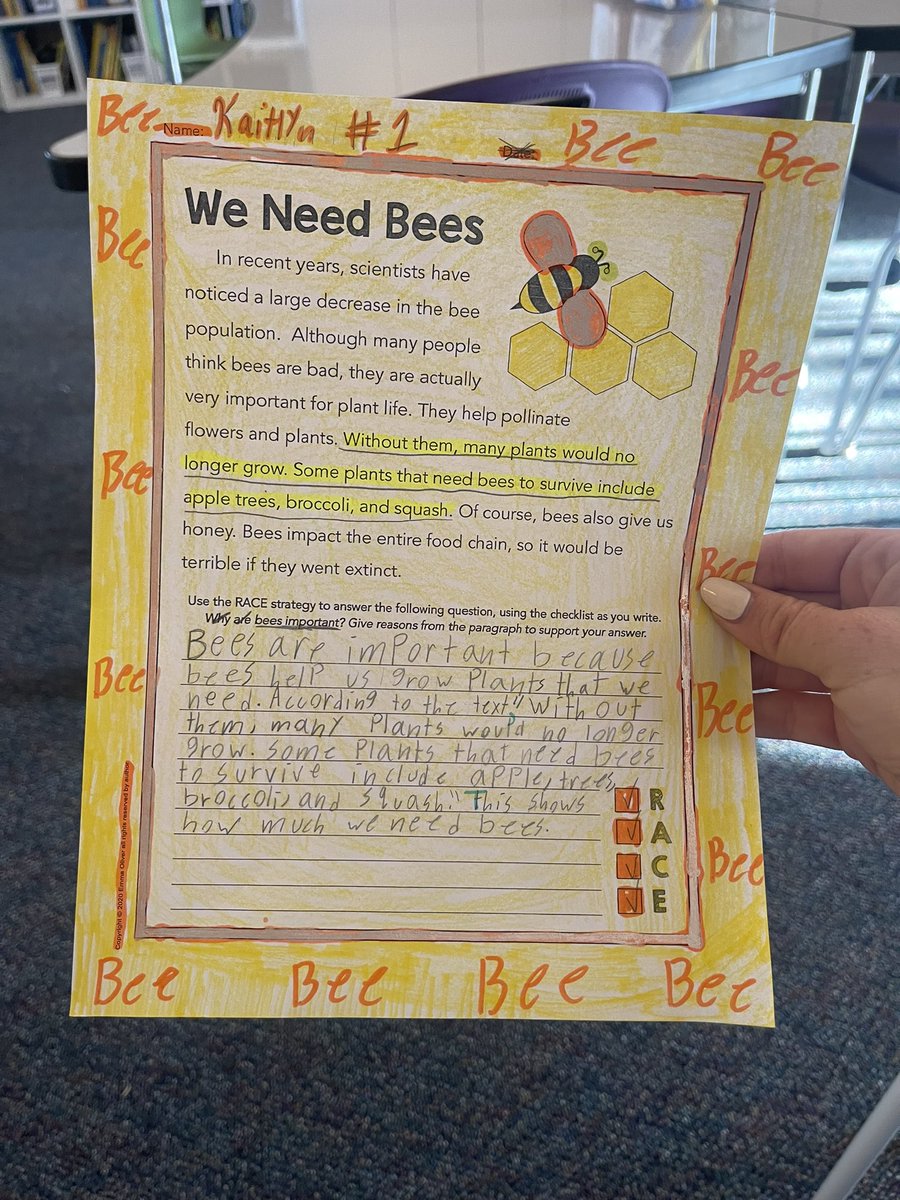 Bee Name: Kaitlyn #1 Date: Bee Bee
Bee
We Need Bees
In recent years, scientists have
noticed a large decrease in the bee
population. Although many people
think bees are bad, they are actually
Bee
very important for plant life. They help pollinate
flowers and plants. Without them, many plants would no
Bee
longer grow. Some plants that need bees to survive include
apple trees, broccoli, and squash. Of course, bees also give us
honey. Bees impact the entire food chain, so it would be
Bee
terrible if they went extinct.
Use the RACE strategy to answer the following question, using the checklist as you write.
Why are bees important? Give reasons from the paragraph to support your answer.
Bees are important because
Bee
bees help us grow Plants that we
need. According to the text," With out
Bee
them, many Plants would no longer
grow. Some Plants that need bees
to survive include apple, trees,
broccoli, and squash." This shows
R
how much we need bees.
A
C
Bee
E
Copyright © 2020 Emma Oliver all rights reserved by author
Bee Bee Bee Bee